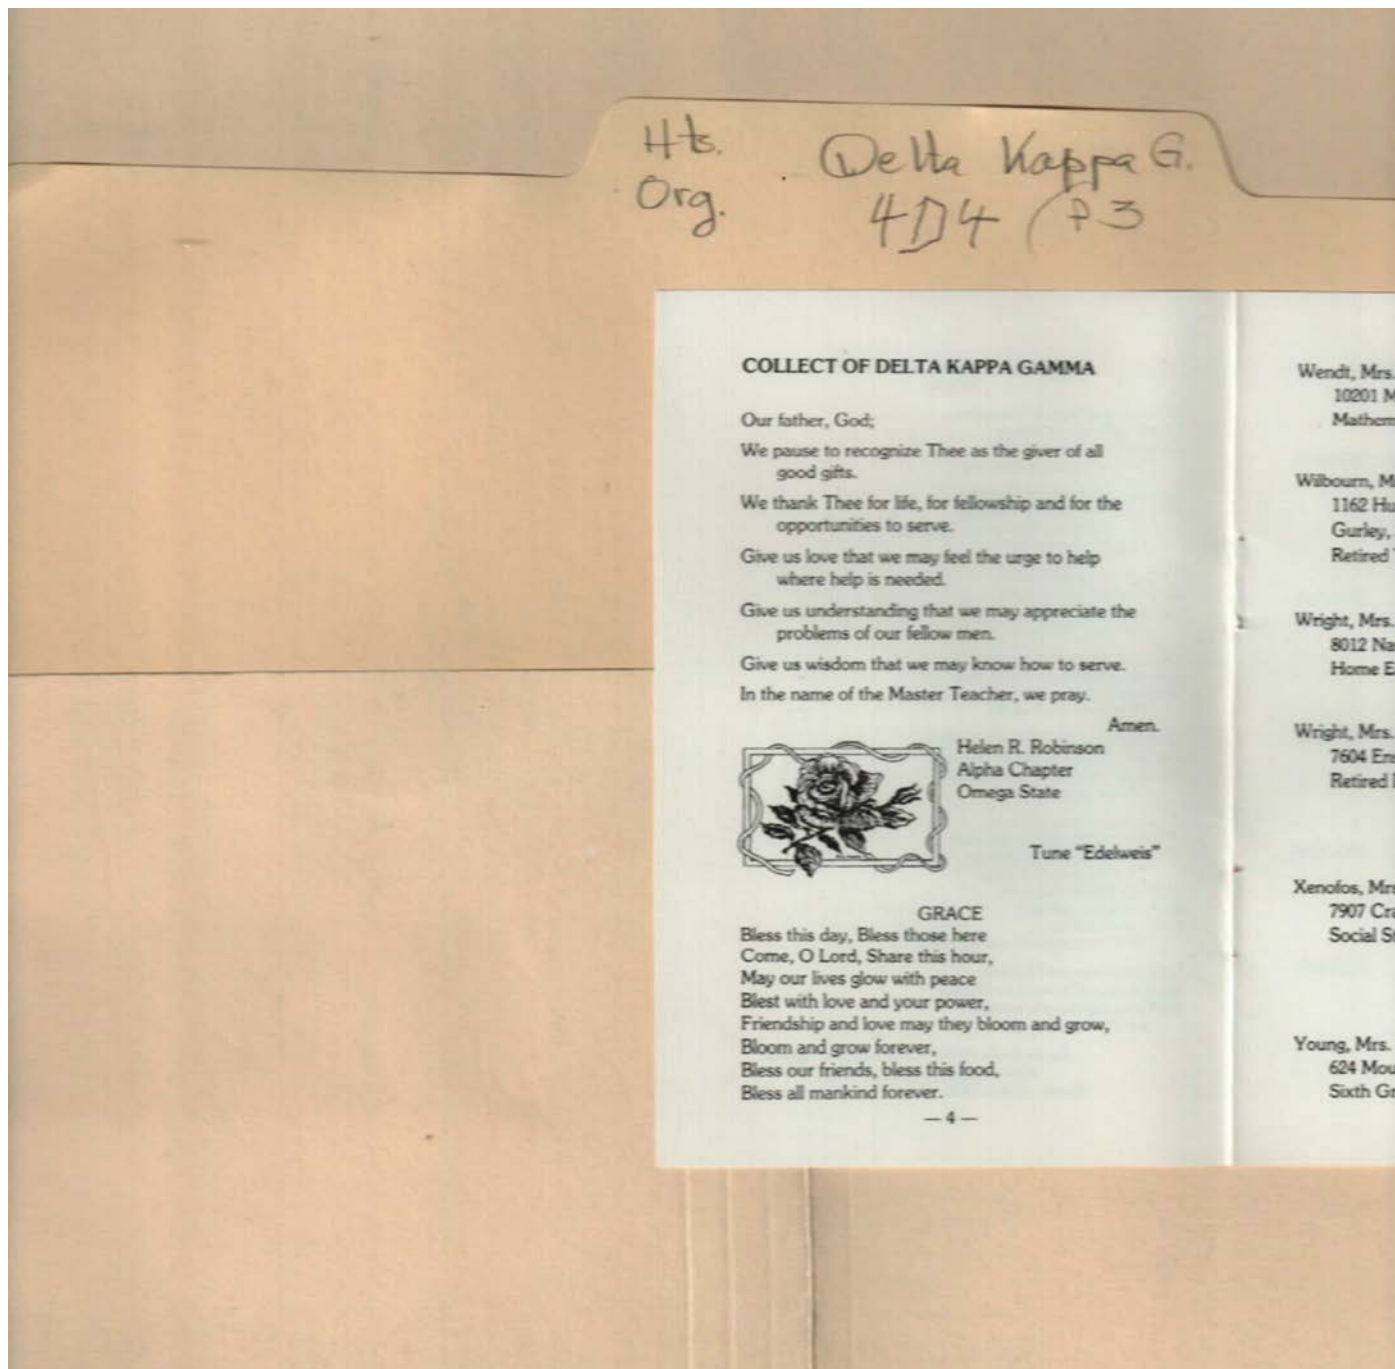 Hts. Delta Kappa G.
Org. 4D4 (P3
COLLECT OF DELTA KAPPA GAMMA
Our father, God;
We pause to recognize Thee as the giver of all
good gifts.
We thank Thee for life, for fellowship and for the
opportunities to serve.
Give us love that we may feel the urge to help
where help is needed.
Give us understanding that we may appreciate the
problems of our fellow men.
Give us wisdom that we may know how to serve.
In the name of the Master Teacher, we pray.
Amen.
Helen R. Robinson
Alpha Chapter
Omega State
Tune "Edelweis"
GRACE
Bless this day, Bless those here
Come, O Lord, Share this hour,
May our lives glow with peace
Blest with love and your power,
Friendship and love may they bloom and grow,
Bloom and grow forever,
Bless our friends, bless this food,
Bless all mankind forever.
— 4 —
Wendt, Mrs.
10201 M
Mathem
Wilbourn, M
1162 Hu
Gurley,
Retired
Wright, Mrs.
8012 Na
Home E
Wright, Mrs.
7604 Ens
Retired
Xenofos, Mrs
7907 Cra
Social St
Young, Mrs.
624 Mou
Sixth Gr